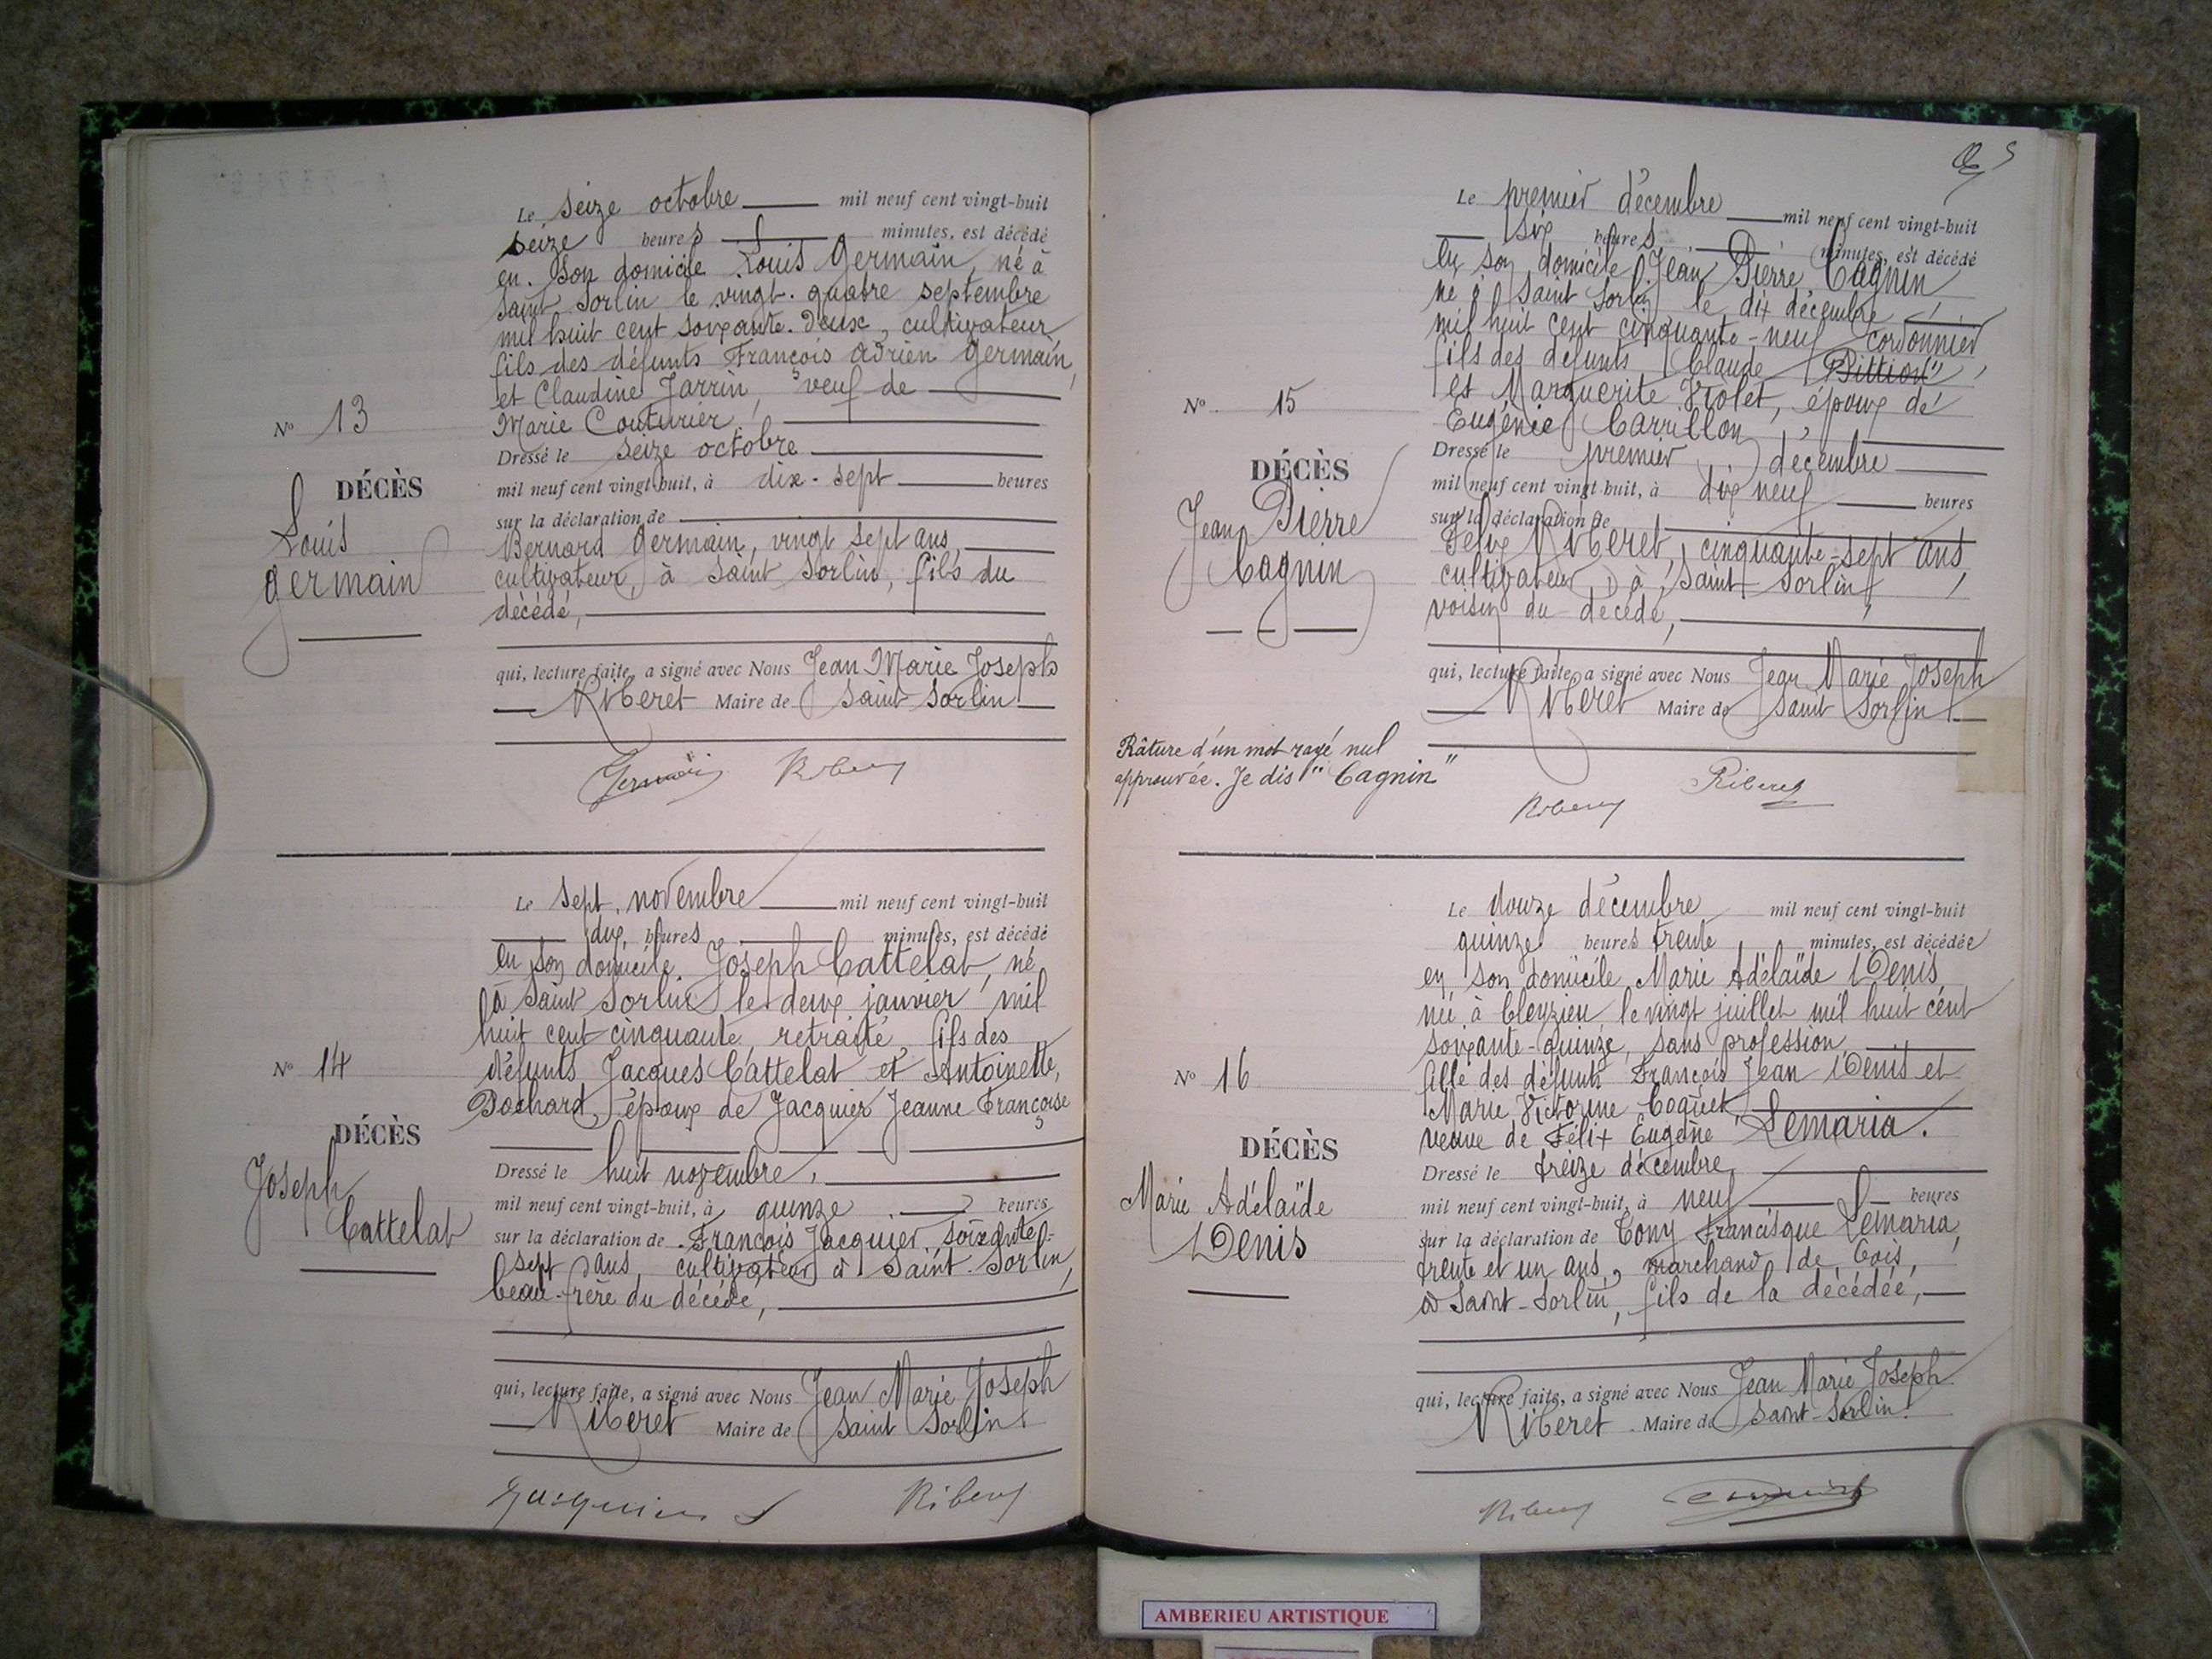 Le seize octobre mil neuf cent vingt-huit
seize heures minutes, est décédé
en son domicile Louis Germain, né à
Saint Sorlin le vingt-quatre septembre
mil huit cent soixante-deux, cultivateur
fils des défunts François Adrien Germain,
et Claudine Jarrin, veuf de
Marie Couturier,
Dressé le seize octobre
mil neuf cent vingt huit, à dix-sept heures
sur la déclaration de
Bernard Germain, vingt sept ans,
cultivateur, à Saint Sorlin, fils du
décédé,
qui, lecture faite, a signé avec Nous Jean Marie Joseph
Riberet Maire de Saint Sorlin
Nº 13
DÉCÈS
Louis
Germain
Germain Riberet
Le sept novembre mil neuf cent vingt-huit
dix heures minutes, est décédé
en son domicile Joseph Cattelat, né
à Saint Sorlin le deux janvier mil
huit cent cinquante, retraité, fils des
défunts Jacques Cattelat et Antoinette,
Pochard, époux de Jacquier Jeanne Françoise
Dressé le huit novembre,
mil neuf cent vingt-huit, à quinze heures
sur la déclaration de François Jacquier, soixante-
sept ans, cultivateur à Saint-Sorlin,
beau-frère du décédé,
qui, lecture faite, a signé avec Nous Jean Marie Joseph
Riberet Maire de Saint Sorlin
Nº 14
DÉCÈS
Joseph
Cattelat
Jacquier Riberet
Le premier décembre mil neuf cent vingt-huit
six heures minutes, est décédé
en son domicile Jean Pierre Cagnin
né à Saint Sorlin le dix décembre
mil huit cent cinquante-neuf cordonnier
fils des défunts Claude Pittion,
et Marguerite Violet, époux de
Eugénie Carrillon,
Dressé le premier décembre
mil neuf cent vingt huit, à dix neuf heures
sur la déclaration de
Félix Riberet, cinquante-sept ans,
cultivateur, à Saint Sorlin,
voisin du décédé,
qui, lecture faite, a signé avec Nous Jean Marie Joseph
Riberet Maire de Saint Sorlin
Nº 15
DÉCÈS
Jean Pierre
Cagnin
Râture d'un mot rayé nul
approuvée. Je dis "Cagnin"
Riberet Riberet
Le douze décembre mil neuf cent vingt-huit
quinze heures trente minutes, est décédée
en son domicile Marie Adélaïde Denis
née à Cleyzieu, le vingt juillet mil huit cent
soixante-quinze, sans profession,
fille des défunts François Jean Denis et
Marie Victorine Coquet,
veuve de Félix Eugène Lemaria.
Dressé le treize décembre,
mil neuf cent vingt-huit, à neuf heures
sur la déclaration de Tony Francisque Lemaria,
trente et un ans, marchand de bois,
à Saint-Sorlin, fils de la décédée,
qui, lecture faite, a signé avec Nous Jean Marie Joseph
Riberet Maire de Saint-Sorlin
Nº 16
DÉCÈS
Marie Adélaïde
Denis
Riberet
AMBERIEU ARTISTIQUE